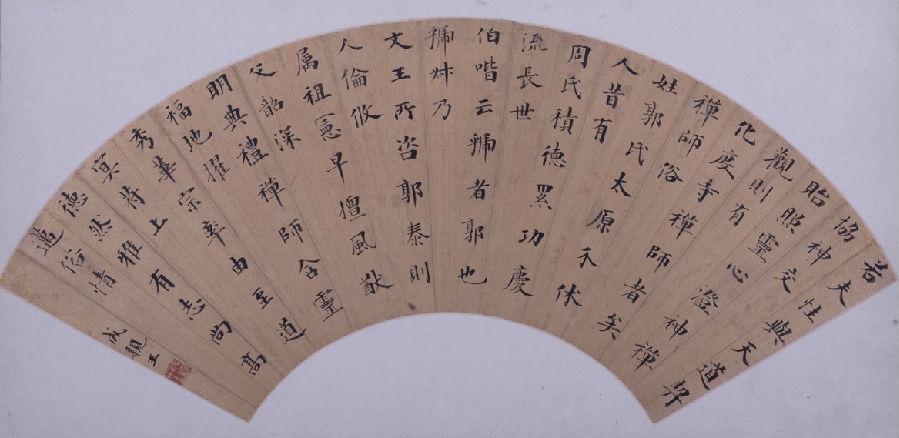 若夫性與天道契
協神交
貽照靈心澄神禪
觀則有
化度寺禪師者矣
禪師俗
姓郭氏太原介休
人昔有
周氏積德累功慶
流長世
伯喈云虢者郭也
虢叔乃
文王所咨郭泰則
人倫攸
屬祖憲早擅風猷
父韶深
明典禮禪師含靈
福地擢
秀華宗率由至道
冥符上
德然雅有志尚高
邁俗情
成親王